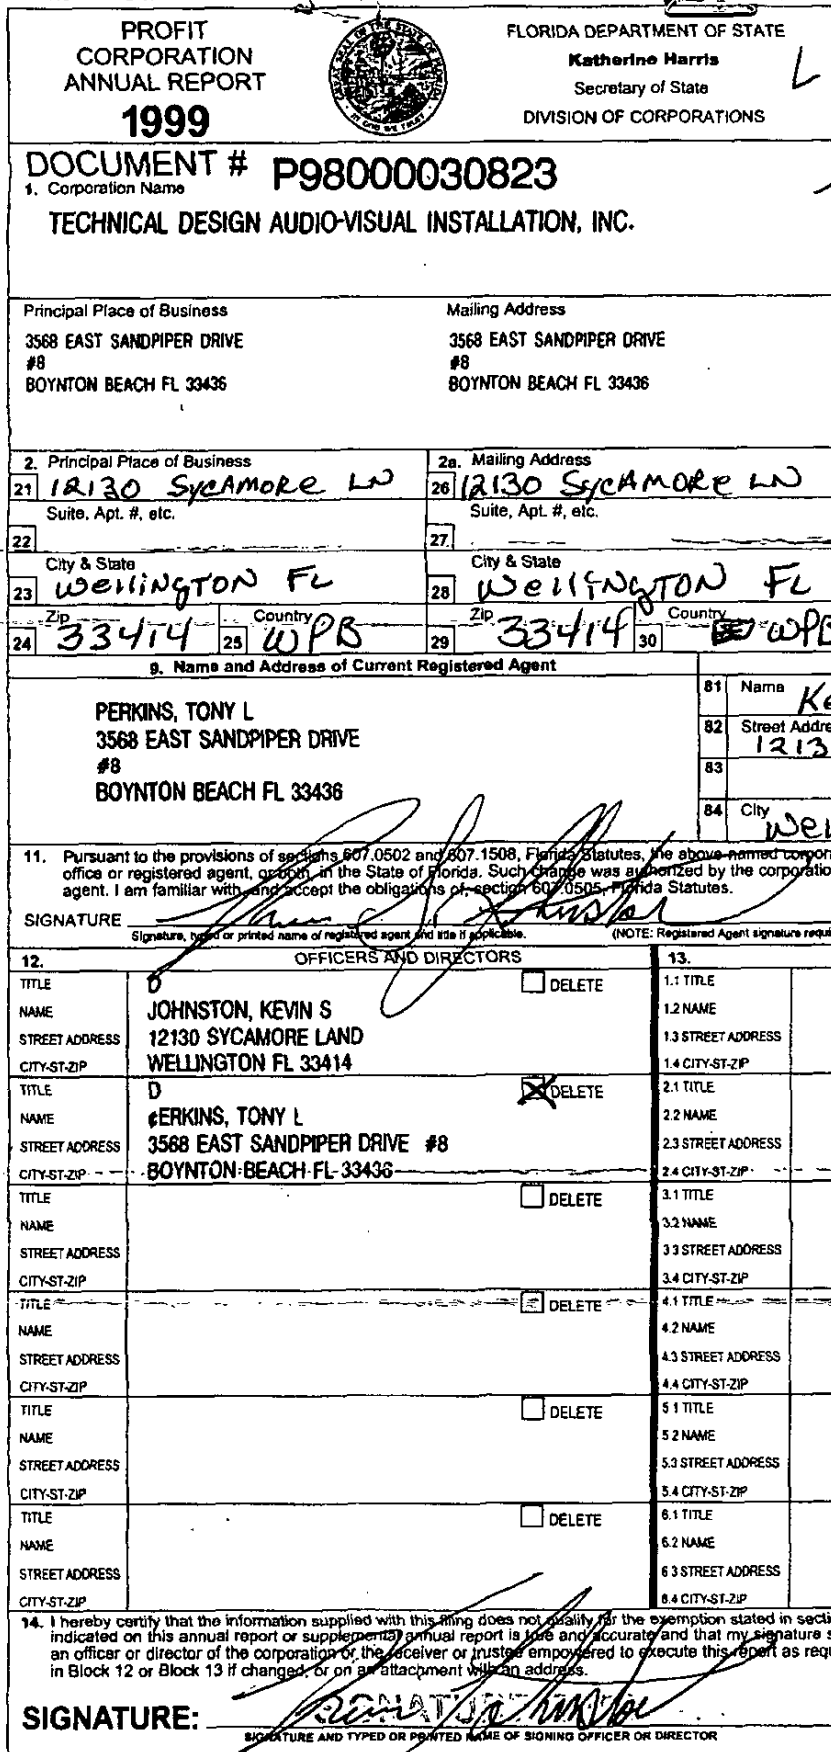 PROFIT
CORPORATION
ANNUAL REPORT
1999
FLORIDA DEPARTMENT OF STATE
Katherine Harris
Secretary of State
DIVISION OF CORPORATIONS
DOCUMENT # P98000030823
1. Corporation Name
TECHNICAL DESIGN AUDIO-VISUAL INSTALLATION, INC.
Principal Place of Business
3568 EAST SANDPIPER DRIVE
#8
BOYNTON BEACH FL 33436
Mailing Address
3568 EAST SANDPIPER DRIVE
#8
BOYNTON BEACH FL 33436
2. Principal Place of Business
21 12130 SycAMORe LN
Suite, Apt. #, etc.
22
City & State
23 WellINgTON FL
Zip
24 33414
Country
25 WPB
2a. Mailing Address
26 12130 SycAMORe LN
Suite, Apt. #, etc.
27
City & State
28 WellINgTON FL
Zip
29 33414
Country
30 WPB
9. Name and Address of Current Registered Agent
PERKINS, TONY L
3568 EAST SANDPIPER DRIVE
#8
BOYNTON BEACH FL 33436
81 Name
Ke
82 Street Addre
1213
83
84 City
Wel
11. Pursuant to the provisions of sections 607.0502 and 607.1508, Florida Statutes, the above-named corpor
office or registered agent, or both, in the State of Florida. Such change was authorized by the corporatio
agent. I am familiar with, and accept the obligations of, section 607.0505, Florida Statutes.
SIGNATURE
Signature, typed or printed name of registered agent and title if applicable.
(NOTE: Registered Agent signature requi
12. OFFICERS AND DIRECTORS
13.
TITLE D DELETE
NAME JOHNSTON, KEVIN S
STREET ADDRESS 12130 SYCAMORE LAND
CITY-ST-ZIP WELLINGTON FL 33414
1.1 TITLE
1.2 NAME
1.3 STREET ADDRESS
1.4 CITY-ST-ZIP
TITLE D DELETE
NAME ERKINS, TONY L
STREET ADDRESS 3568 EAST SANDPIPER DRIVE #8
CITY-ST-ZIP BOYNTON BEACH FL 33436
2.1 TITLE
2.2 NAME
2.3 STREET ADDRESS
2.4 CITY-ST-ZIP
TITLE DELETE
NAME
STREET ADDRESS
CITY-ST-ZIP
3.1 TITLE
3.2 NAME
3 3 STREET ADDRESS
3.4 CITY-ST-ZIP
TITLE DELETE
NAME
STREET ADDRESS
CITY-ST-ZIP
4.1 TITLE
4.2 NAME
4.3 STREET ADDRESS
4.4 CITY-ST-ZIP
TITLE DELETE
NAME
STREET ADDRESS
CITY-ST-ZIP
5 1 TITLE
5 2 NAME
5.3 STREET ADDRESS
5.4 CITY-ST-ZIP
TITLE DELETE
NAME
STREET ADDRESS
CITY-ST-ZIP
6.1 TITLE
6.2 NAME
6 3 STREET ADDRESS
6.4 CITY-ST-ZIP
14. I hereby certify that the information supplied with this filing does not qualify for the exemption stated in secti
indicated on this annual report or supplemental annual report is true and accurate and that my signature s
an officer or director of the corporation or the receiver or trustee empowered to execute this report as requ
in Block 12 or Block 13 if changed, or on an attachment with an address.
SIGNATURE:
SIGNATURE AND TYPED OR PRINTED NAME OF SIGNING OFFICER OR DIRECTOR